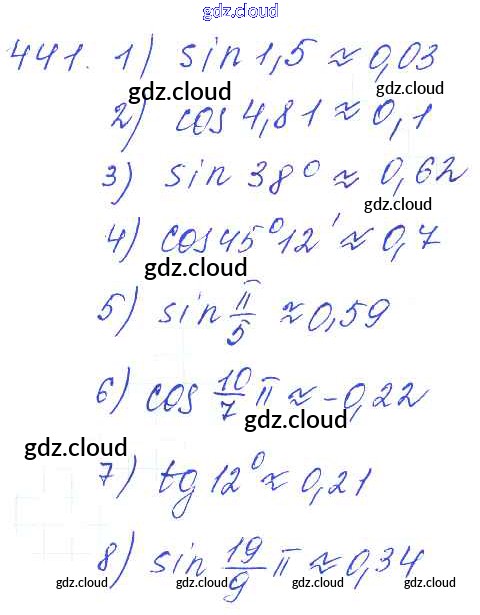 gdz.cloud
441. 1) sin 1,5 ≈ 0,03
gdz.cloud
gdz.cloud
2) cos 4,81 ≈ 0,1
3) sin 38° ≈ 0,62
gdz.cloud
4) cos 45°12' ≈ 0,7
gdz.cloud
5) sin π/5 ≈ 0,59
6) cos 10/7 π ≈ -0,22
gdz.cloud
gdz.cloud
7) tg 12° ≈ 0,21
8) sin 19/9 π ≈ 0,34
gdz.cloud gdz.cloud gdz.cloud gdz.cloud